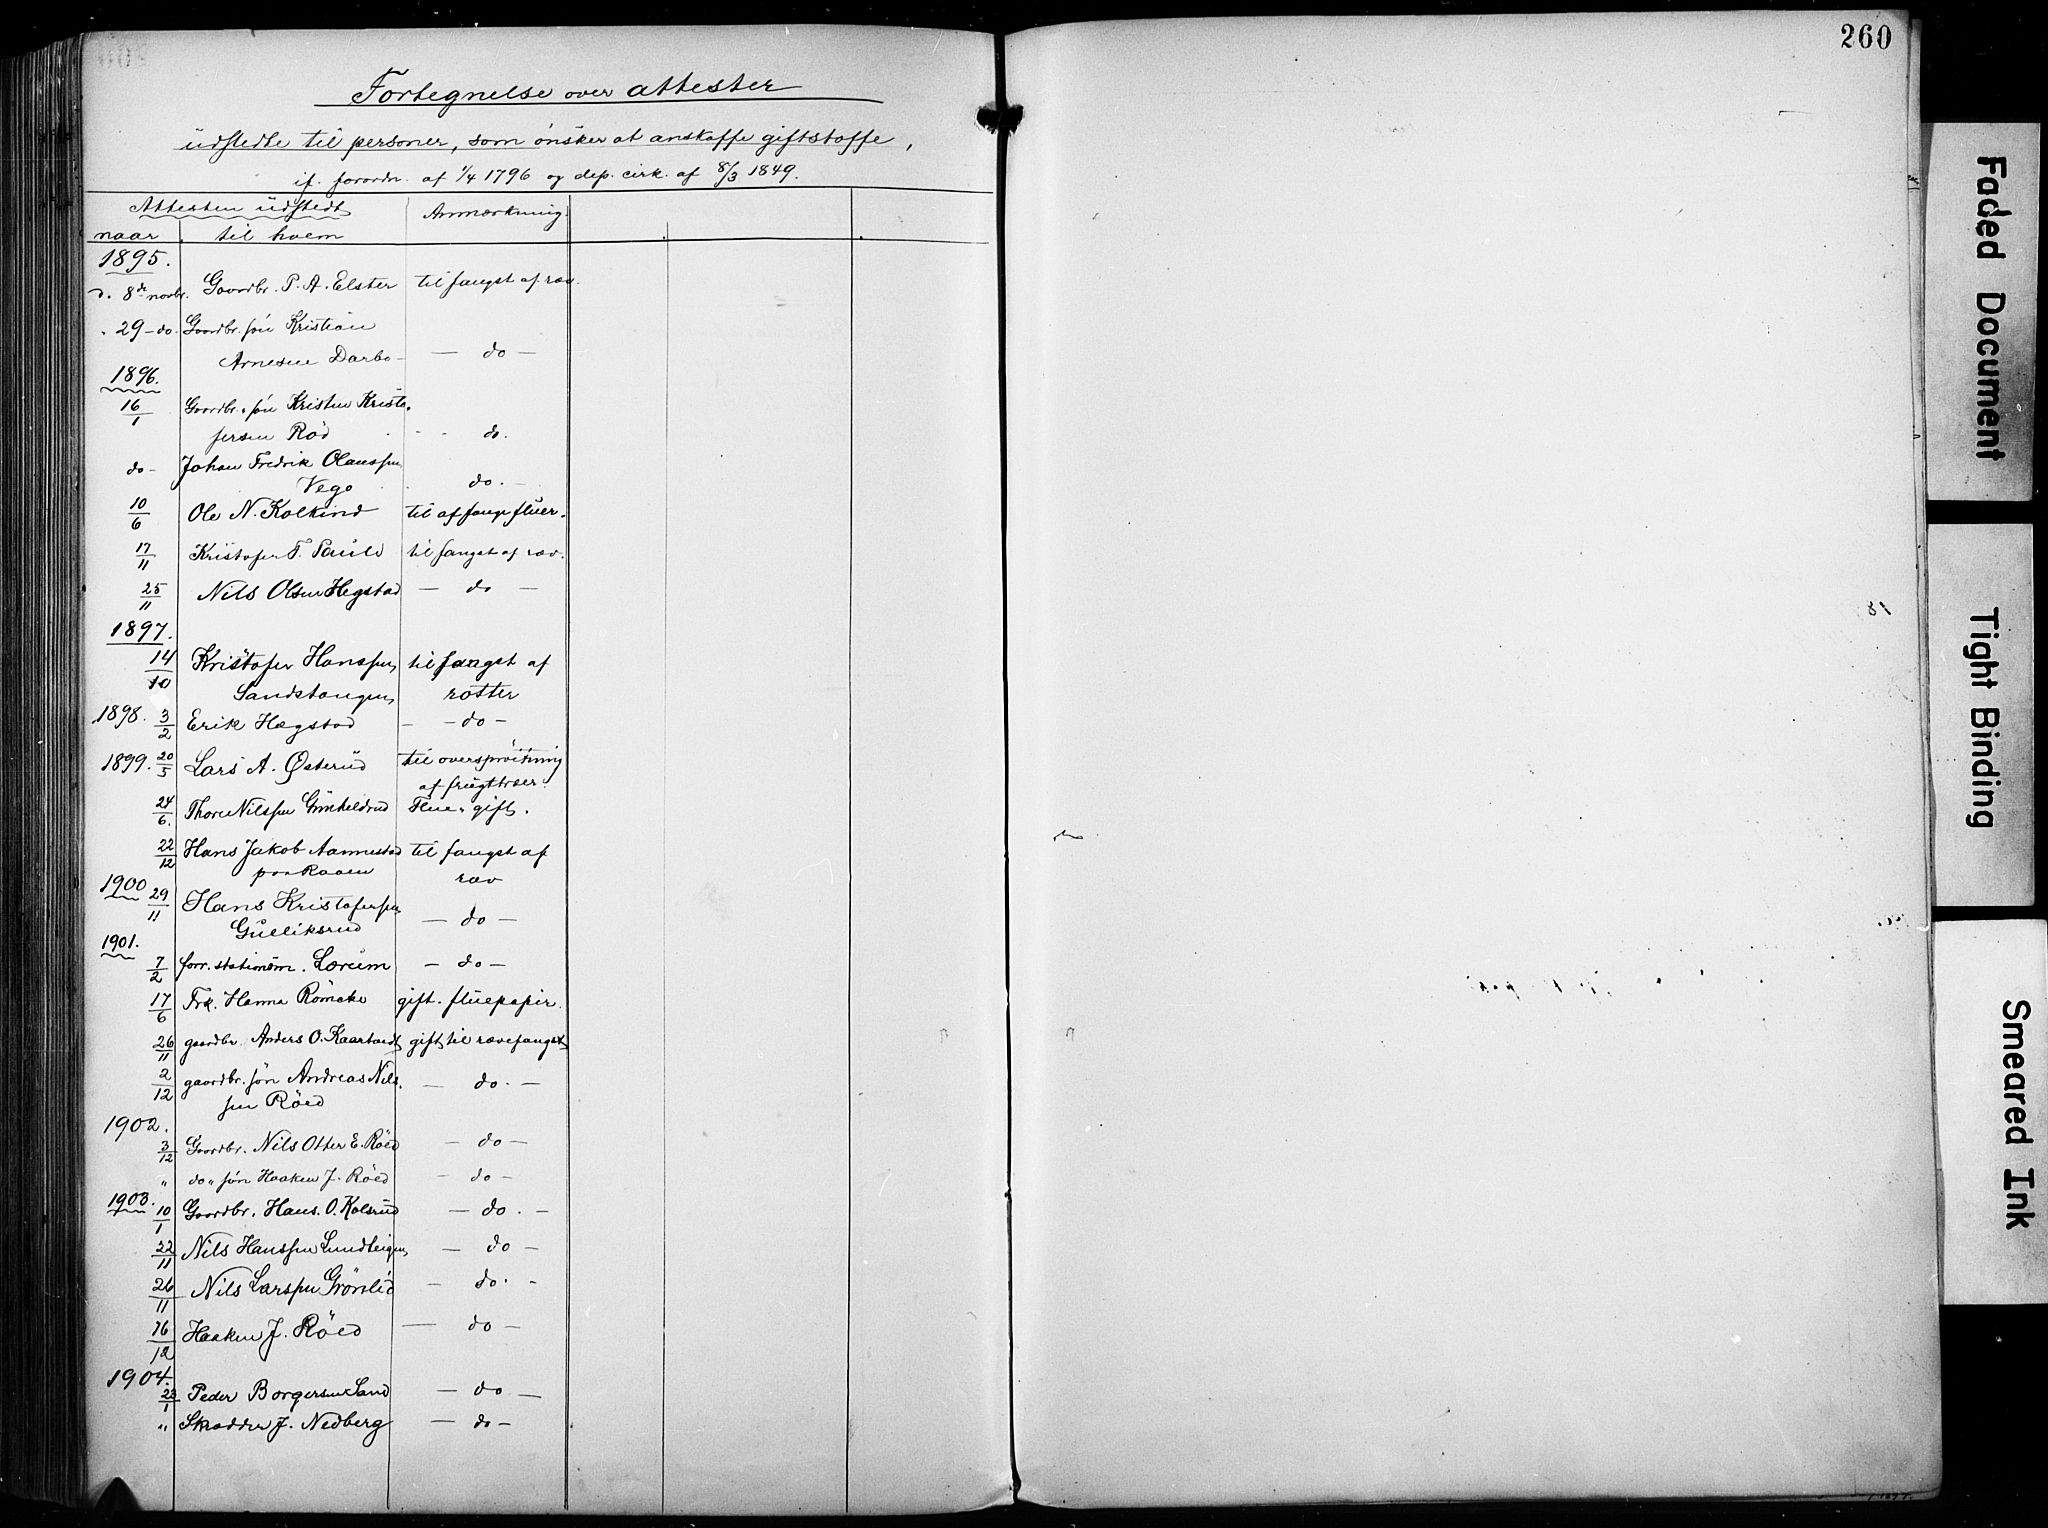 260
Fortegnelse over attester
udstedte til personer, som ønsker at anskaffe giftstoffe,
if. forordn. af 1/4 1796 og dep. cirk. af 8/3 1849.
Attesten udstedt Anmærkning.
naar til hvem
1895.
d. 8de novbr. Gaardbr. P. A. Elster til fangst af ræv.
" 29 - do. Gaardbr. søn Kristian
Arnesen Darbo - do -
1896.
16/1 Gaardbr. søn Kristen Kristo-
fersen Röd do.
do - Johan Fredrik Olaussen
Vego do. -
10/6 Ole N. Kolkind til at fange fluer.
17/11 Kristofer T. Saule til fangst af ræv.
25/11 Nils Olsen Hegstad - do -
1897.
14/10 Kristofer Hanssen til fangst af
Sandstangen rotter
1898. 3/2 Erik Hægstad - do -
1899. 20/5 Lars A. Østerud til oversprøitning
af frugttrær.
24/6. Thore Nilssen Gunheldrud Flue-gift.
22/12 Hans Jakob Aannestad til fangst af
paa Raaen ræv
1900 29/11 Hans Kristoferssen
Gulliksrud - do -
1901.
7/2 forr. stationsm. Lærum - do -
17/6 Frk. Hanna Römcke gift. fluepapir.
26/11 gaardbr. Anders O. Kaartvedt gift til rævefangst
2/12 gaardbr. søn Andreas Nils-
sen Röed - do. -
1902.
3/12 Gaardbr. Nils Otter E. Röed - do -
" do " søn Haaken J. Röed - do -
1903.
10/1 Gaardbr. Hans. O. Kolsrud - do. -
22/11 Nils Hanssen Lundteigen - do -
26/11 Nils Larssen Grönlid - do. -
16/12 Haaken J. Röed - do -
1904.
23/1 Peder Borgersen Sand - do -
" Skrædder J. Nedberg - do -
Faded Document
Tight Binding
Smeared Ink